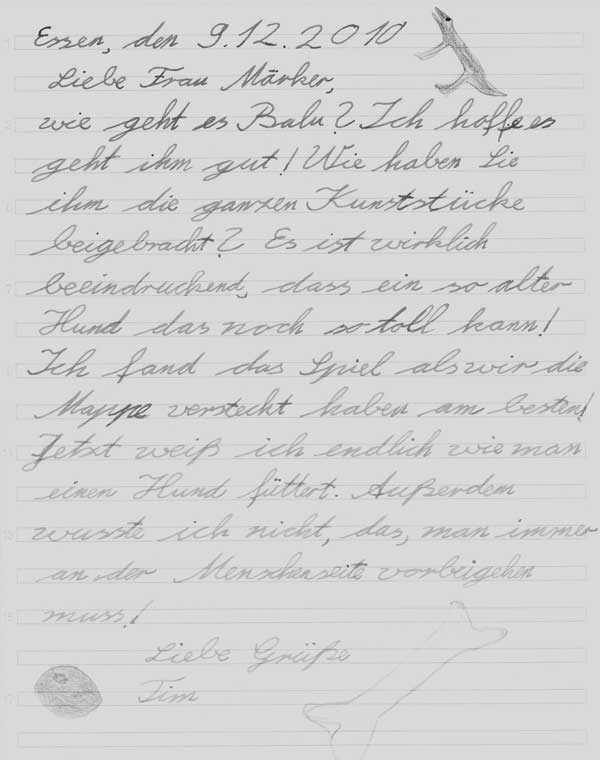 Essen, den 9.12.2010
Liebe Frau Märker,
wie geht es Balu? Ich hoffe es
geht ihm gut! Wie haben Sie
ihm die ganzen Kunststücke
beigebracht? Es ist wirklich
beeindruckend, dass ein so alter
Hund das noch so toll kann!
Ich fand das Spiel als wir die
Mappe versteckt haben am besten!
Jetzt weiß ich endlich wie man
einen Hund füttert. Außerdem
wusste ich nicht, das, man immer
an der Menschenseite vorbeigehen
muss!
Liebe Grüße
Tim